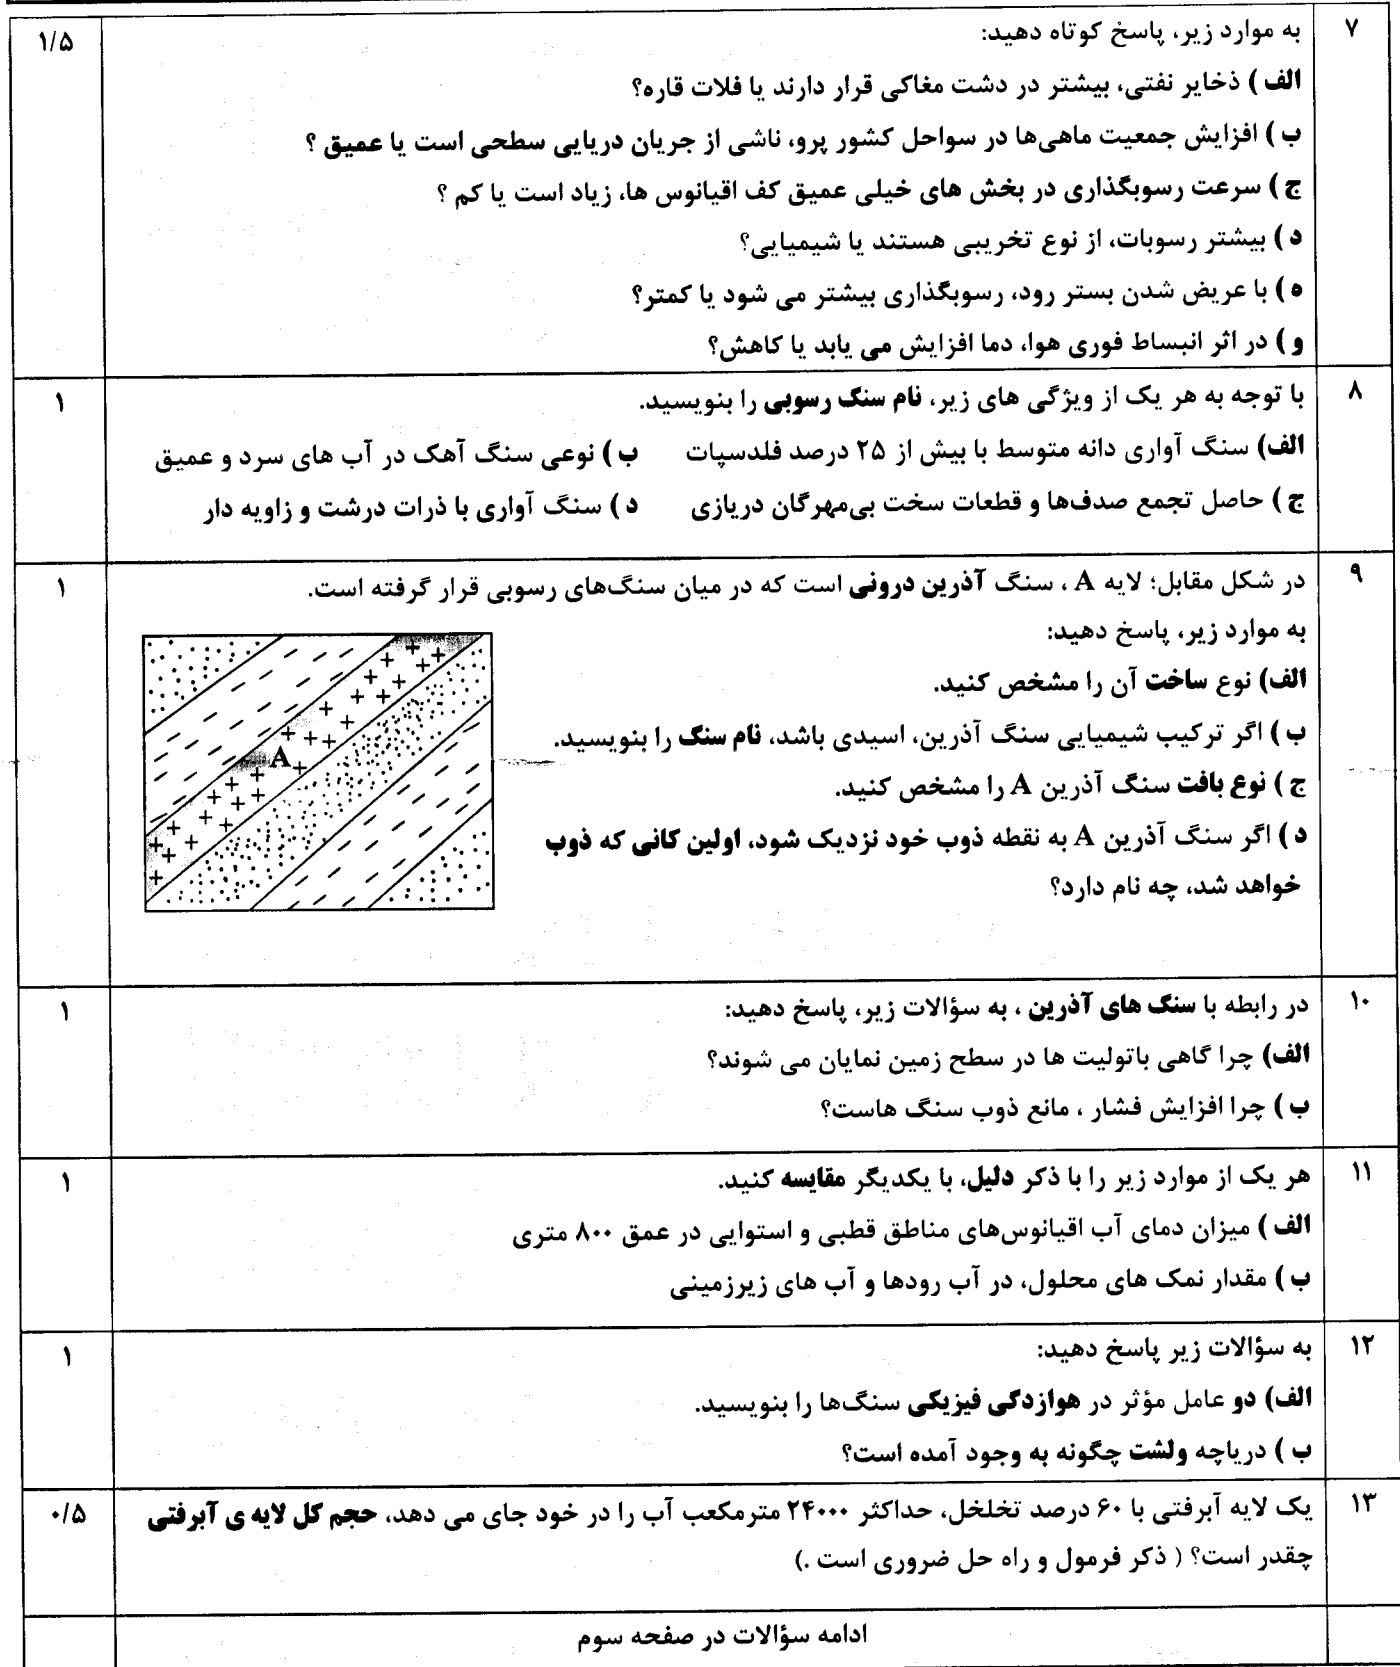 ۷ به موارد زیر، پاسخ کوتاه دهید: ۱/۵
الف ) ذخایر نفتی، بیشتر در دشت مغاکی قرار دارند یا فلات قاره؟
ب ) افزایش جمعیت ماهی‌ها در سواحل کشور پرو، ناشی از جریان دریایی سطحی است یا عمیق ؟
ج ) سرعت رسوبگذاری در بخش های خیلی عمیق کف اقیانوس ها، زیاد است یا کم ؟
د ) بیشتر رسوبات، از نوع تخریبی هستند یا شیمیایی؟
ه ) با عریض شدن بستر رود، رسوبگذاری بیشتر می شود یا کمتر؟
و ) در اثر انبساط فوری هوا، دما افزایش می یابد یا کاهش؟
۸ با توجه به هر یک از ویژگی های زیر، نام سنگ رسوبی را بنویسید. ۱
الف) سنگ آواری دانه متوسط با بیش از ۲۵ درصد فلدسپات ب ) نوعی سنگ آهک در آب های سرد و عمیق
ج ) حاصل تجمع صدف‌ها و قطعات سخت بی‌مهرگان دریازی د ) سنگ آواری با ذرات درشت و زاویه دار
۹ در شکل مقابل؛ لایه A ، سنگ آذرین درونی است که در میان سنگ‌های رسوبی قرار گرفته است. ۱
به موارد زیر، پاسخ دهید:
الف) نوع ساخت آن را مشخص کنید.
ب ) اگر ترکیب شیمیایی سنگ آذرین، اسیدی باشد، نام سنگ را بنویسید.
A
ج ) نوع بافت سنگ آذرین A را مشخص کنید.
د ) اگر سنگ آذرین A به نقطه ذوب خود نزدیک شود، اولین کانی که ذوب
خواهد شد، چه نام دارد؟
۱۰ در رابطه با سنگ های آذرین ، به سؤالات زیر، پاسخ دهید: ۱
الف) چرا گاهی باتولیت ها در سطح زمین نمایان می شوند؟
ب ) چرا افزایش فشار ، مانع ذوب سنگ هاست؟
۱۱ هر یک از موارد زیر را با ذکر دلیل، با یکدیگر مقایسه کنید. ۱
الف ) میزان دمای آب اقیانوس‌های مناطق قطبی و استوایی در عمق ۸۰۰ متری
ب ) مقدار نمک های محلول، در آب رودها و آب های زیرزمینی
۱۲ به سؤالات زیر پاسخ دهید: ۱
الف) دو عامل مؤثر در هوازدگی فیزیکی سنگ‌ها را بنویسید.
ب ) دریاچه ولشت چگونه به وجود آمده است؟
۱۳ یک لایه آبرفتی با ۶۰ درصد تخلخل، حداکثر ۲۴۰۰۰ مترمکعب آب را در خود جای می دهد، حجم کل لایه ی آبرفتی ۰/۵
چقدر است؟ ( ذکر فرمول و راه حل ضروری است .)
ادامه سؤالات در صفحه سوم